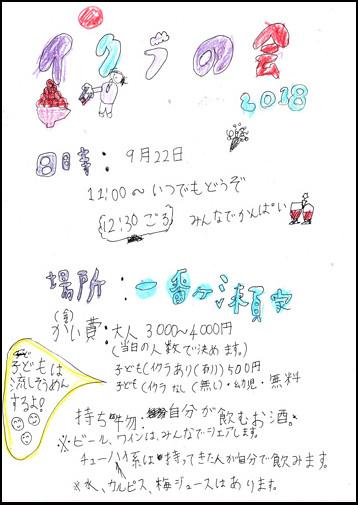 イクラの会
2018
日時: 9月22日
11:00〜いつでもどうぞ
(12:30ごろ) みんなでかんぱい
場所:一番ヶ瀬家
(会)
かい費:大人 3000〜4000円
(当日の人数で決めます。)
子ども(イクラあり(有り)500円
子ども(イクラなし(無し)・幼児・無料
子どもは
流しそうめん
するよ!
持ち物:自分が飲むお酒。
※・ビール、ワインは、みんなでシェアします。
チューハイ系は持ってきた人が自分で飲みます。
※水、カルピス、梅ジュースはあります。